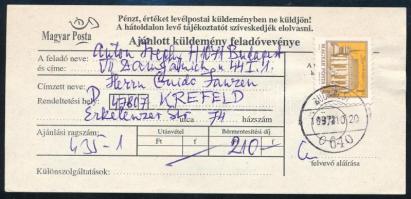 Pénzt, értéket levélpostai küldeményben ne küldjön!
A hátoldalon levő tájékoztatót szíveskedjék elolvasni.
Magyar Posta
Ajánlott küldemény feladóvevénye
A feladó neve:
és címe:
Anton H 1071 Budapest
VII 44. I. 1.
Címzett neve: Herrn Guido Janzen
Rendeltetési hely: D 47807 KREFELD
Erkelenzer Str utca 74 házszám
Ajánlási ragszám:
435-1
Utánvétel
Bérmentesítési díj
Ft
f
210
Különszolgáltatások:
felvevő aláírása